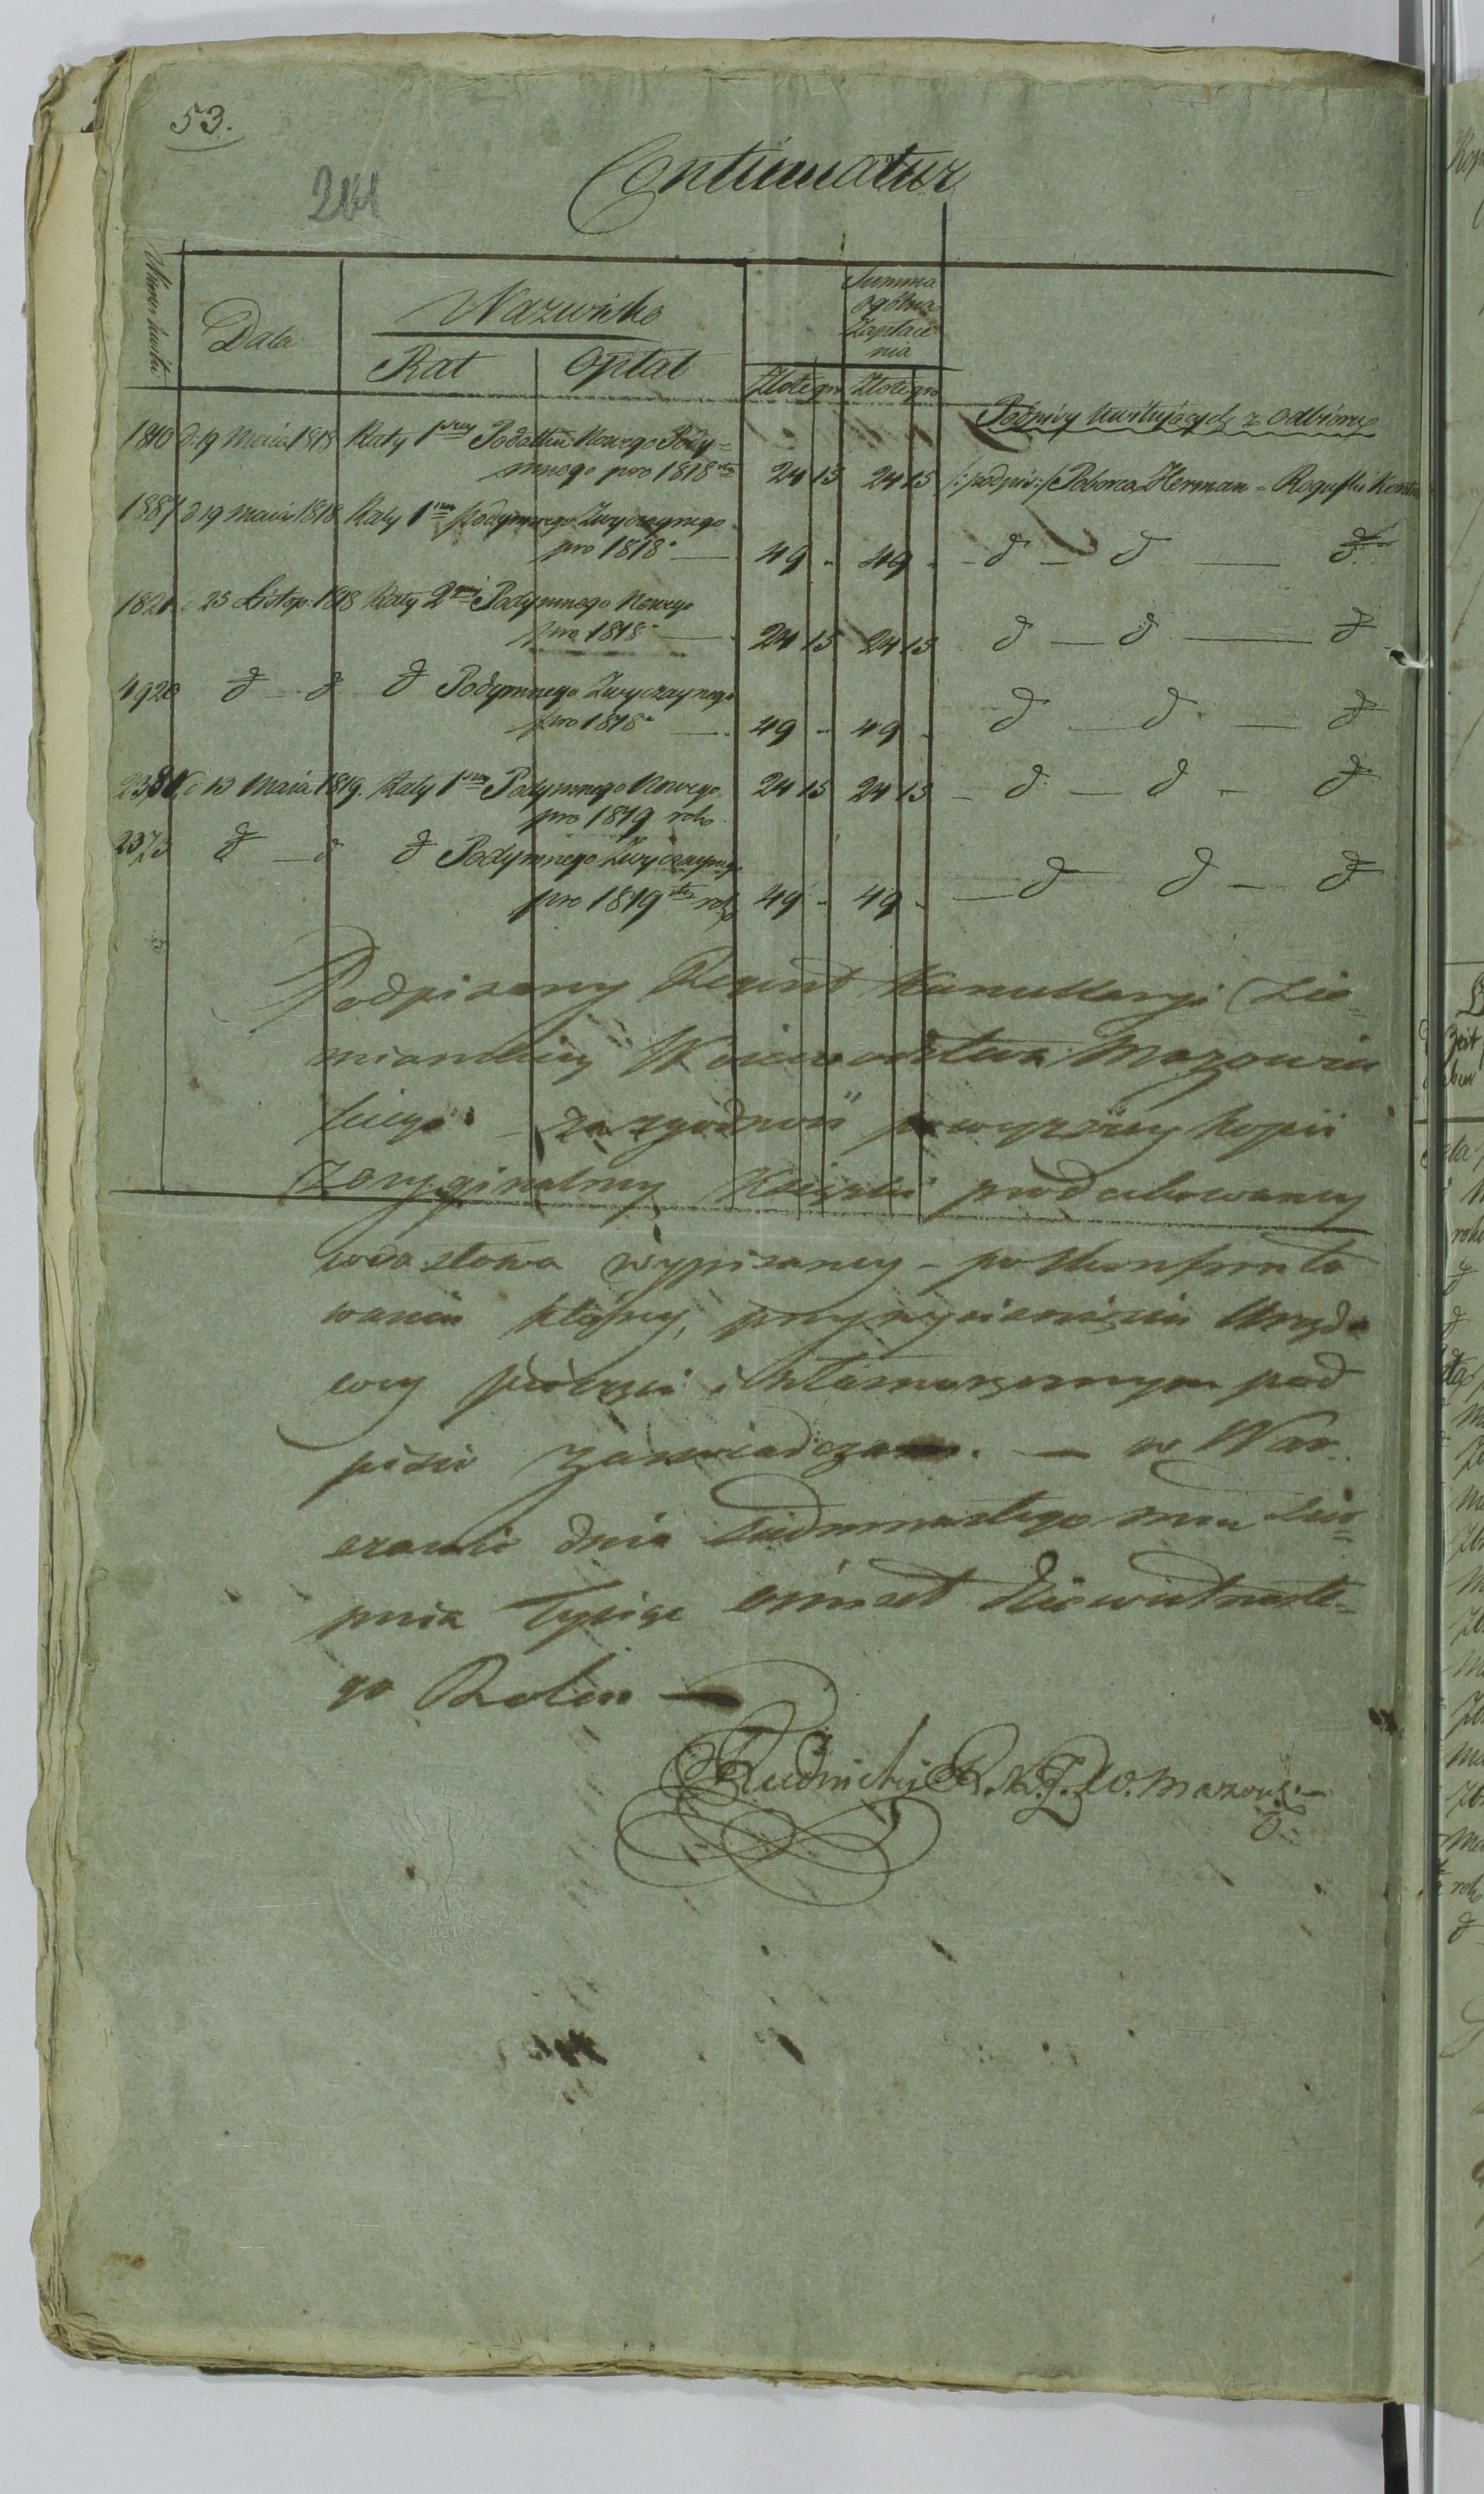 53.
Continuatur
201
Numer kwitu
Data
Nazwisko
Rat
Opłat
Summa
ogólna
Zapłace
nia
Złote gr
Złote gr
Podpisy kwitujących z odbioru
1810 d. 19 Maia 1818 Raty 1szey Podatku Nowego Pody=
mnego pro 1818
24 15 24 15 /:podpis:/ Poborca Herman = Roguski Kontr
1887 d 19 maia 1818 Raty 1szey Podymnego Zwyczaynego
pro 1818 —
49 - 49 - - d — d — d
1821 d 25 Listop: 1818 Raty 2giej Podymnego Nowego
pro 1818 —
24 15 24 15 d — d — d
4920 d — d d Podymnego Zwyczaynego
pro 1818 —
49 - 49 - d — d — d
2381 d 13 Maia 1819. Raty 1szey Podymnego Nowego
24 15 24 15 — d — d — d
pro 1819 roku
2373 d — d d Podymnego Zwyczaynego
pro 1819 roku 49 - 49 - — d d — d
Podpisany Regent Kancellaryi Zie=
miańskiey Woiewództwa Mazowie
ckiego — za zgodność powyższey kopii
z oryginalney Książki produkowaney
co do słowa wypisaney — po skonfronto
waniu któréy, przy wyciśnięciu Urzędo
wey pieczęci i własnoręcznym pod
pisie zaświadczam. — w War
szawie dnia siedmnastego mca Sier=
pnia Tysiąc ośmset dziewiętnaste=
go Roku —
Rudnicki R. K. Z. W. Mazow: